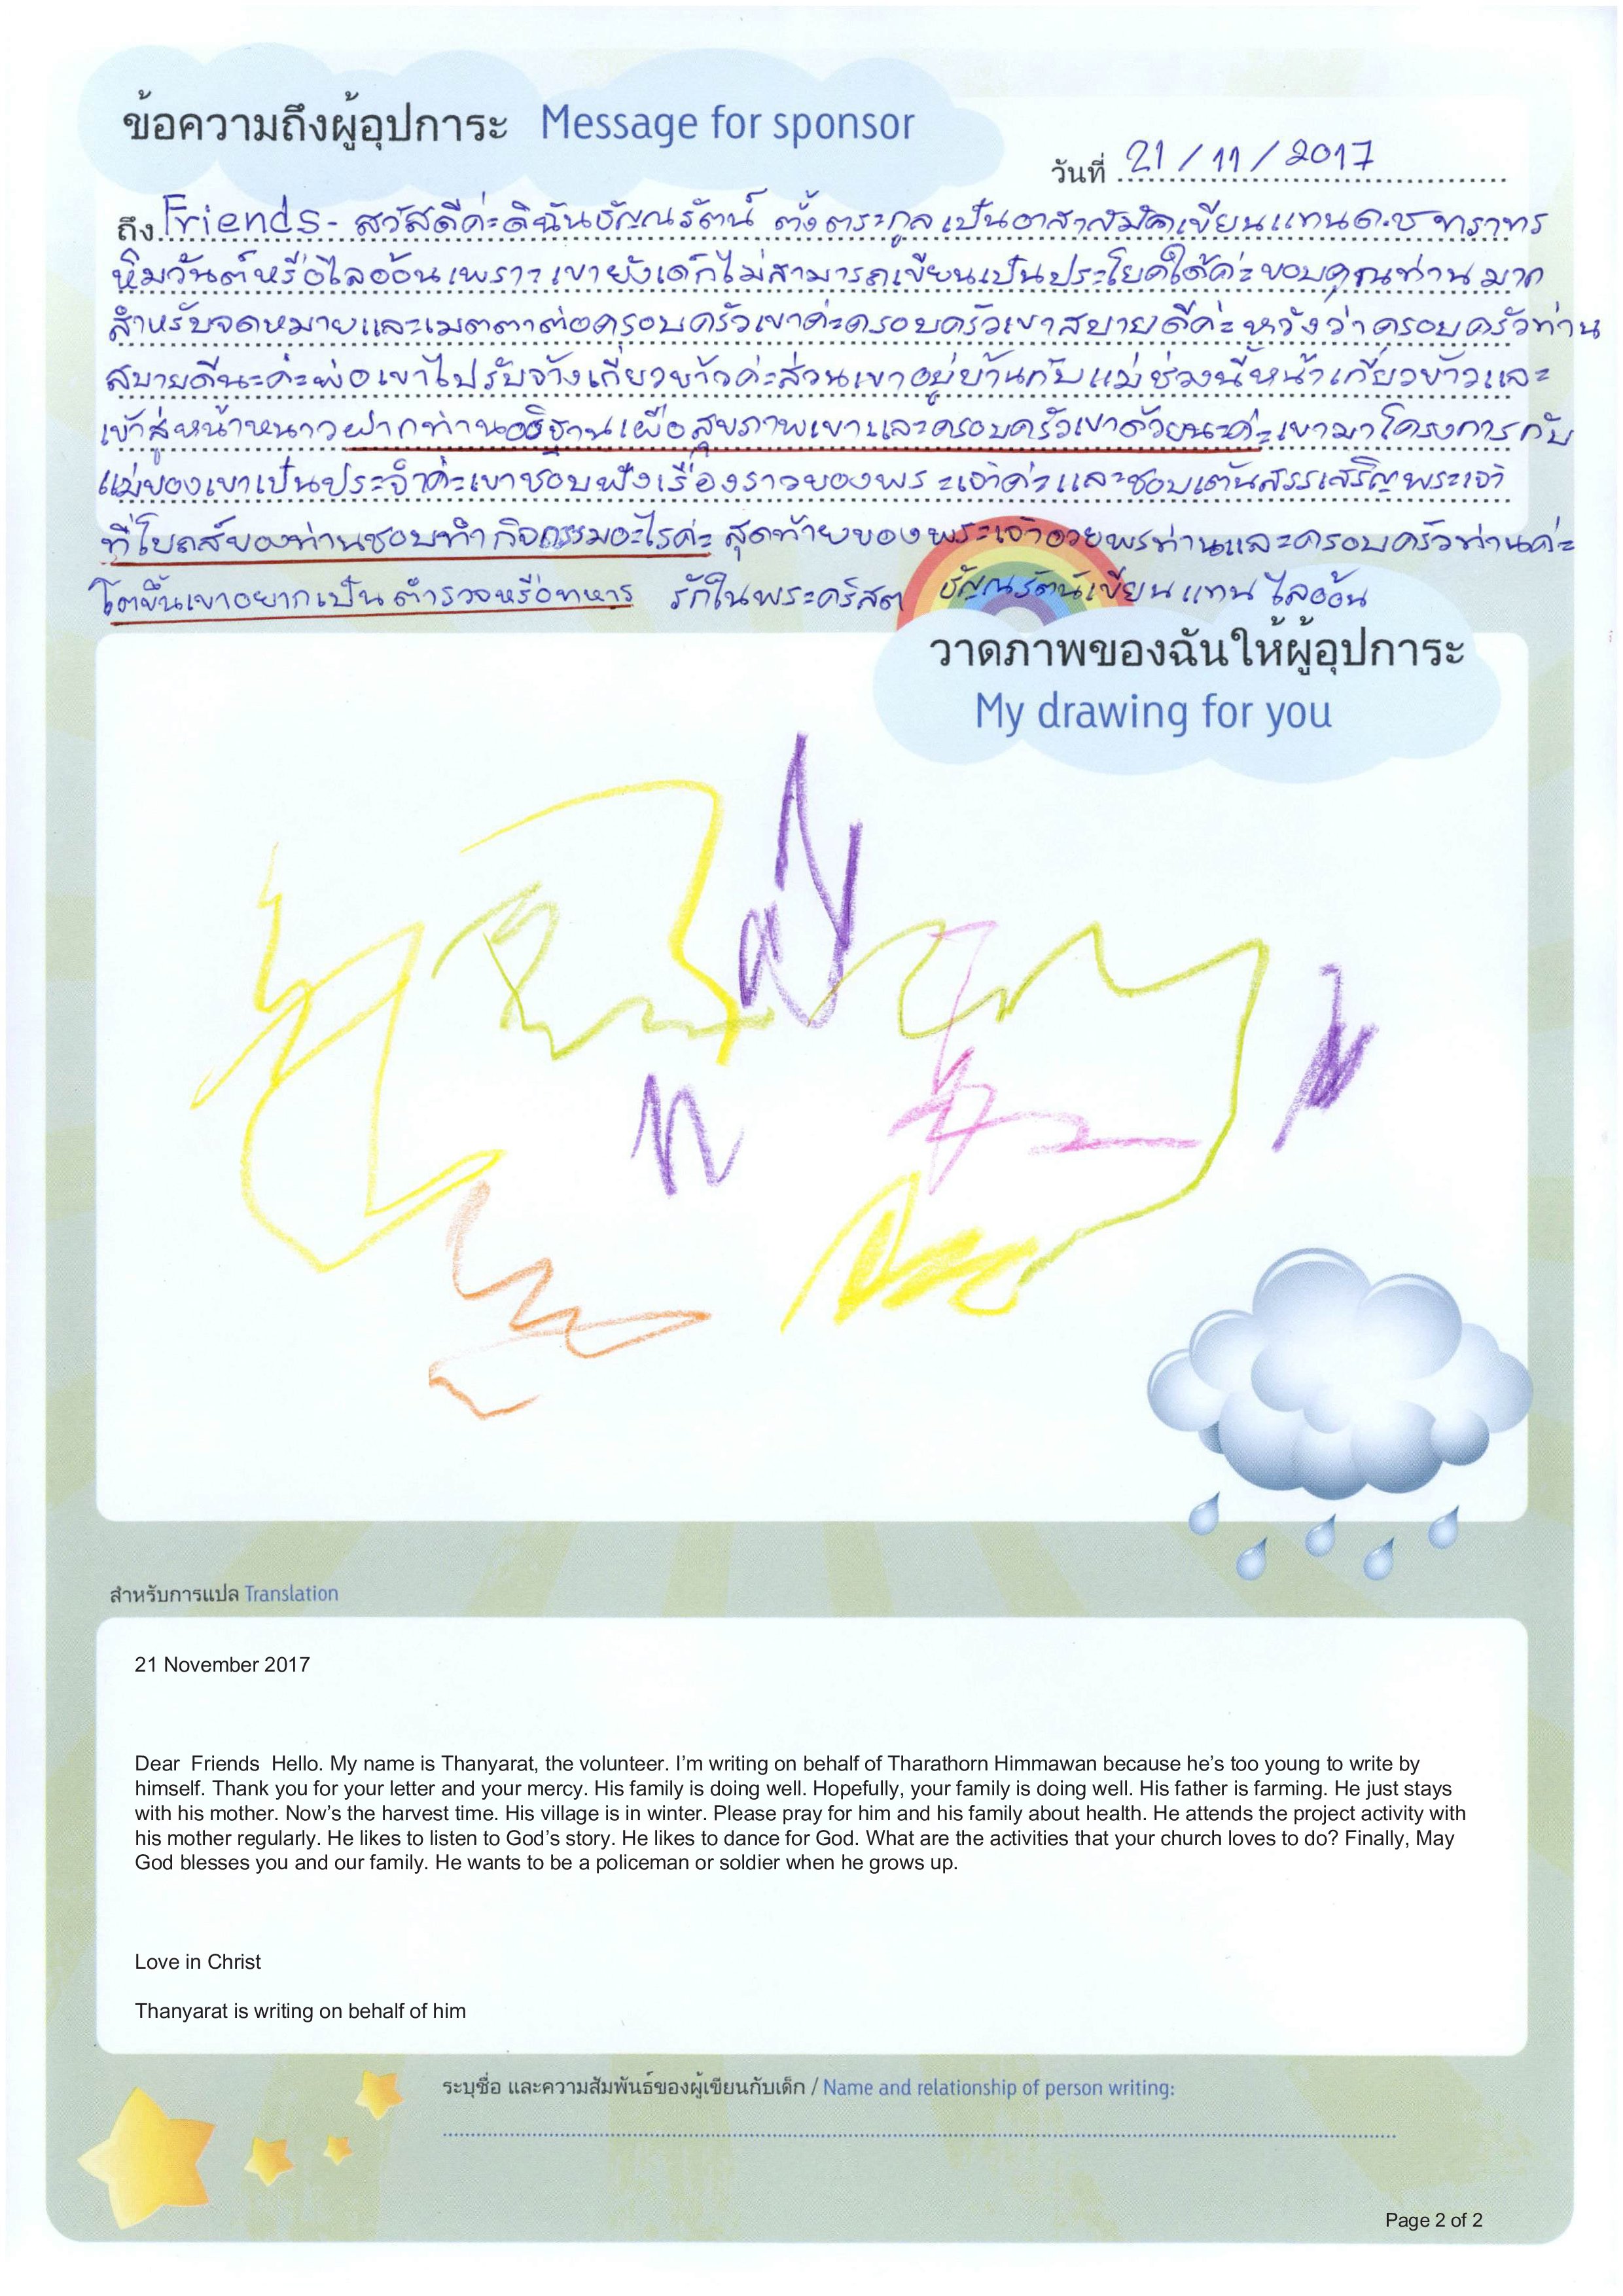 ข้อความถึงผู้อุปการะ Message for sponsor
วันที่ 21/11/2017
ถึง Friends - สวัสดีค่ะดิฉันธัญณรัตน์ ตั้งตระกูล เป็นอาสาสมัคเขียนแทนด.ช ทราทร
หิมวันต์หรือไลออ้นเพราะเขายังเด็กไม่สามารถเขียนเป็นประโยคได้ค่ะขอบคุณท่านมาก
สำหรับจดหมายและเมตตาต่อครอบครัวเขาค่ะครอบครัวเขาสบายดีค่ะหวังว่าครอบครัวท่าน
สบายดีนะค่ะพ่อเขาไปรับจ้างเกี่ยวข้าวค่ะส่วนเขาอยู่บ้านกับแม่ช่วงนี้หน้าเกี่ยวข้าวและ
เข้าสู่หน้าหนาวฝากท่านอธิฐานเผื่อสุขภาพเขาและครอบครัวเขาด้วยนะค่ะเขามาโครงการกับ
แม่ของเขาเป็นประจำค่ะเขาชอบฟังเรื่องราวของพระเจ้าค่ะและชอบเต้นสรรเสริญพระเจ้า
ที่โบถส์ของท่านชอบทำกิจกรรมอะไรค่ะ สุดท้ายของพระเจ้าอวยพรท่านและครอบครัวท่านค่ะ
โตขึ้นเขาอยากเป็นตำรวจหรือทหาร รักในพระคริสต ธัญณรัตน์เขียนแทน ไลออ้น
วาดภาพของฉันให้ผู้อุปการะ
My drawing for you
สำหรับการแปล Translation
21 November 2017
Dear Friends Hello. My name is Thanyarat, the volunteer. I’m writing on behalf of Tharathorn Himmawan because he’s too young to write by
himself. Thank you for your letter and your mercy. His family is doing well. Hopefully, your family is doing well. His father is farming. He just stays
with his mother. Now’s the harvest time. His village is in winter. Please pray for him and his family about health. He attends the project activity with
his mother regularly. He likes to listen to God’s story. He likes to dance for God. What are the activities that your church loves to do? Finally, May
God blesses you and our family. He wants to be a policeman or soldier when he grows up.
Love in Christ
Thanyarat is writing on behalf of him
ระบุชื่อ และความสัมพันธ์ของผู้เขียนกับเด็ก / Name and relationship of person writing:
Page 2 of 2